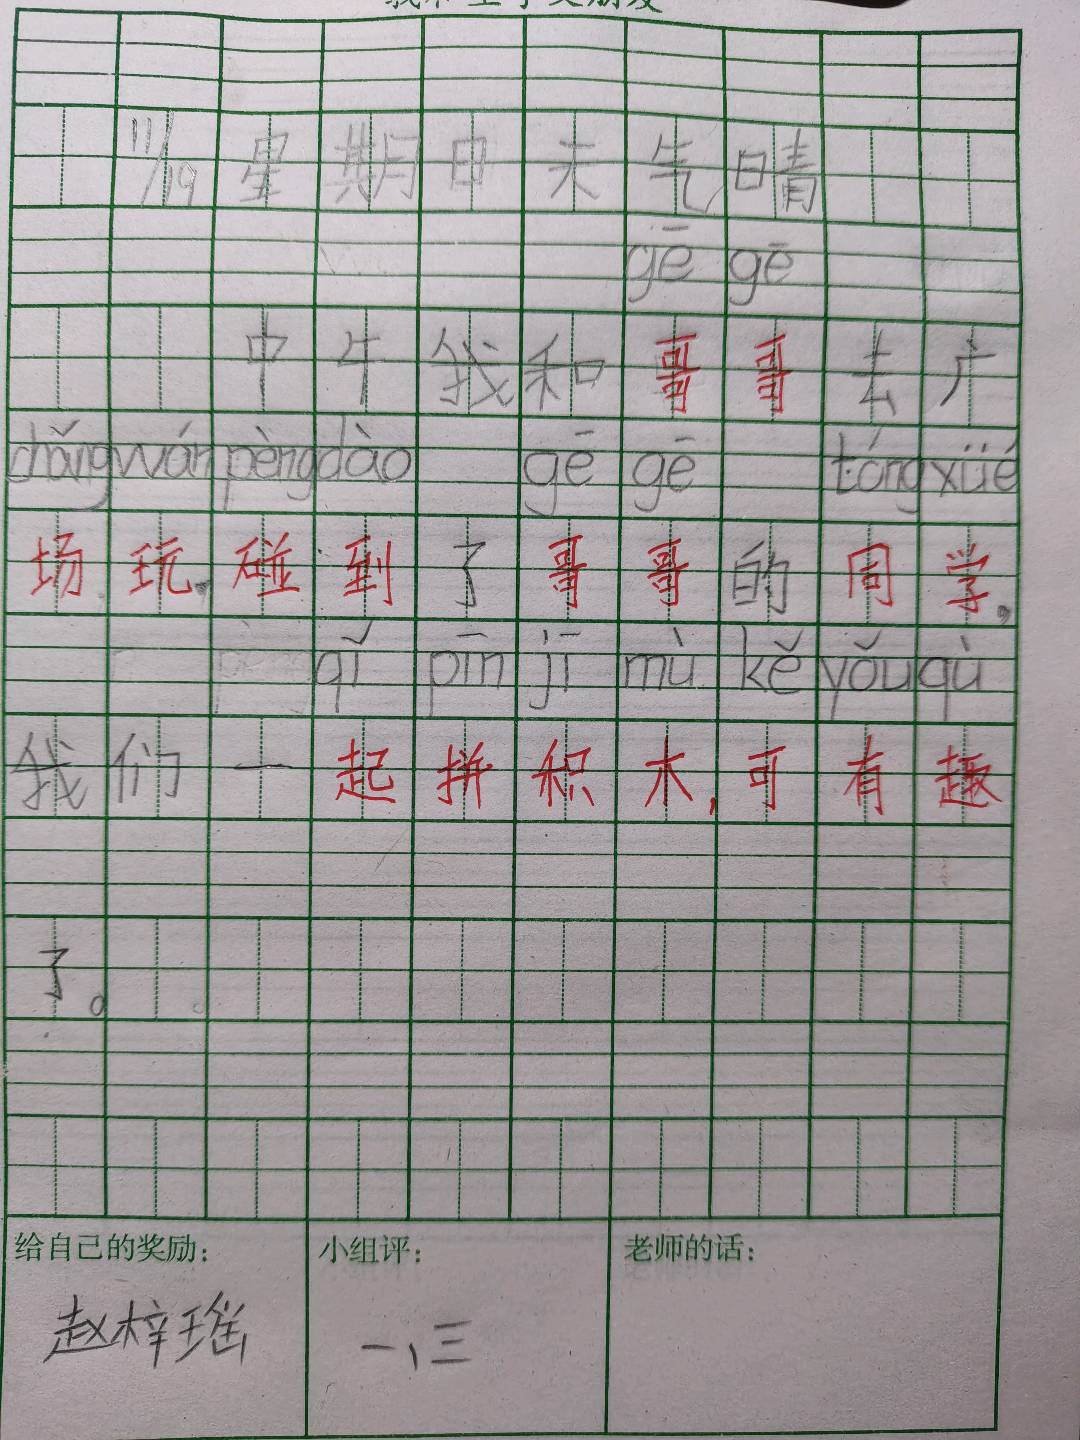 11/19 星期日 天气晴
gē gē
中午我和哥哥去广
chǎng wán pèng dào gē gē tóng xüé
场玩,碰到了哥哥的同学,
qǐ pīn jī mù kě yǒu qù
我们一起拼积木,可有趣
了。
给自己的奖励: 小组评: 老师的话:
赵梓瑶 一、三